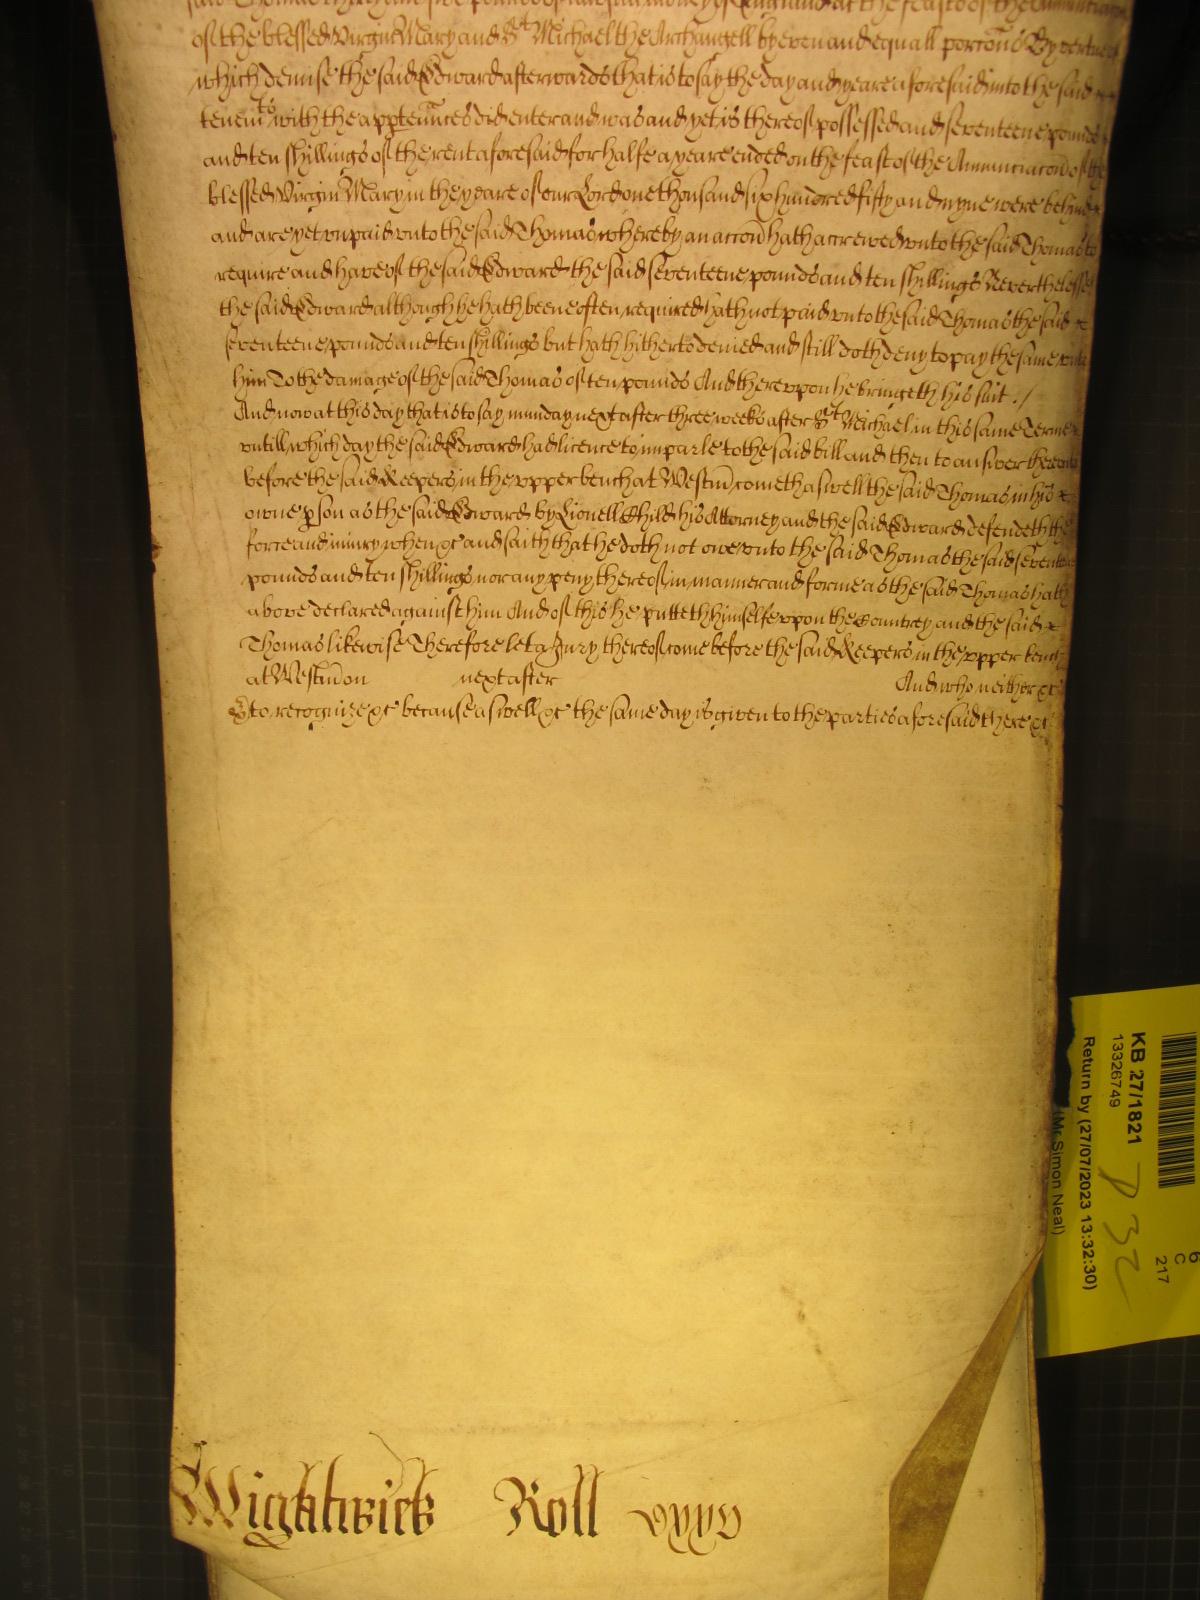 said Thomas thirty and five pounds of lawfull money of England at the feastes of the Annunciacon
of the blessed Virgin Mary and St Michael the Archangell by even and equall porcons By vertue of
which demise the said Edward afterwards that is to say the day and yeare aforesaid into the said
tenemts with the appurtenances did enter and was and yet is thereof possessed and seventeene pounds
and ten shyllings of the rent aforesaid for halfe a yeare ended on the feast of the Annunciacon of the
blessed Virgin Mary in the yeare of our Lord one thousand six hundred fifty and nyne were behind
and are yet unpaid unto the said Thomas whereby an accon hath accrewed unto the said Thomas to
require and have of the said Edward the said seventeene pounds and ten shillings Neverthelesse
the said Edward although he hath beene often required hath not paid unto the said Thomas the said
seventeene pounds and ten shillings but hath hitherto denied and still doth deny to pay the same unto
him To the damage of the said Thomas of ten pounds And thereupon he bringeth his suit ./
And now at this day that is to say munday next after three weeks after St Michael in this same Terme
untill which day the said Edward had licence to imparle to the said bill and then to answer thereunto
before the said Keepers in the upper bench at Westm cometh aswell the said Thomas in his
owne pson as the said Edward by Lionell Child his Attorney and the said Edward defendeth the
force and iniury when &c and saith that he doth not owe unto the said Thomas the said seventeene
pounds and ten shillings nor any peny thereof in manner and forme as the said Thomas hath
above declared against him And of this he putteth himselfe upon the Countrey and the said
Thomas likewise Therefore let a Jury thereof come before the said Keepers in the upper bench
at Westm on next after And who neither &c
to recognize &c because aswell &c the same day is given to the parties aforesaid there &c
Wightwick Roll
KB 27/1821
13326749
Return by (27/07/2023 13:32:30)
(Mr Simon Neal)
6
C
217